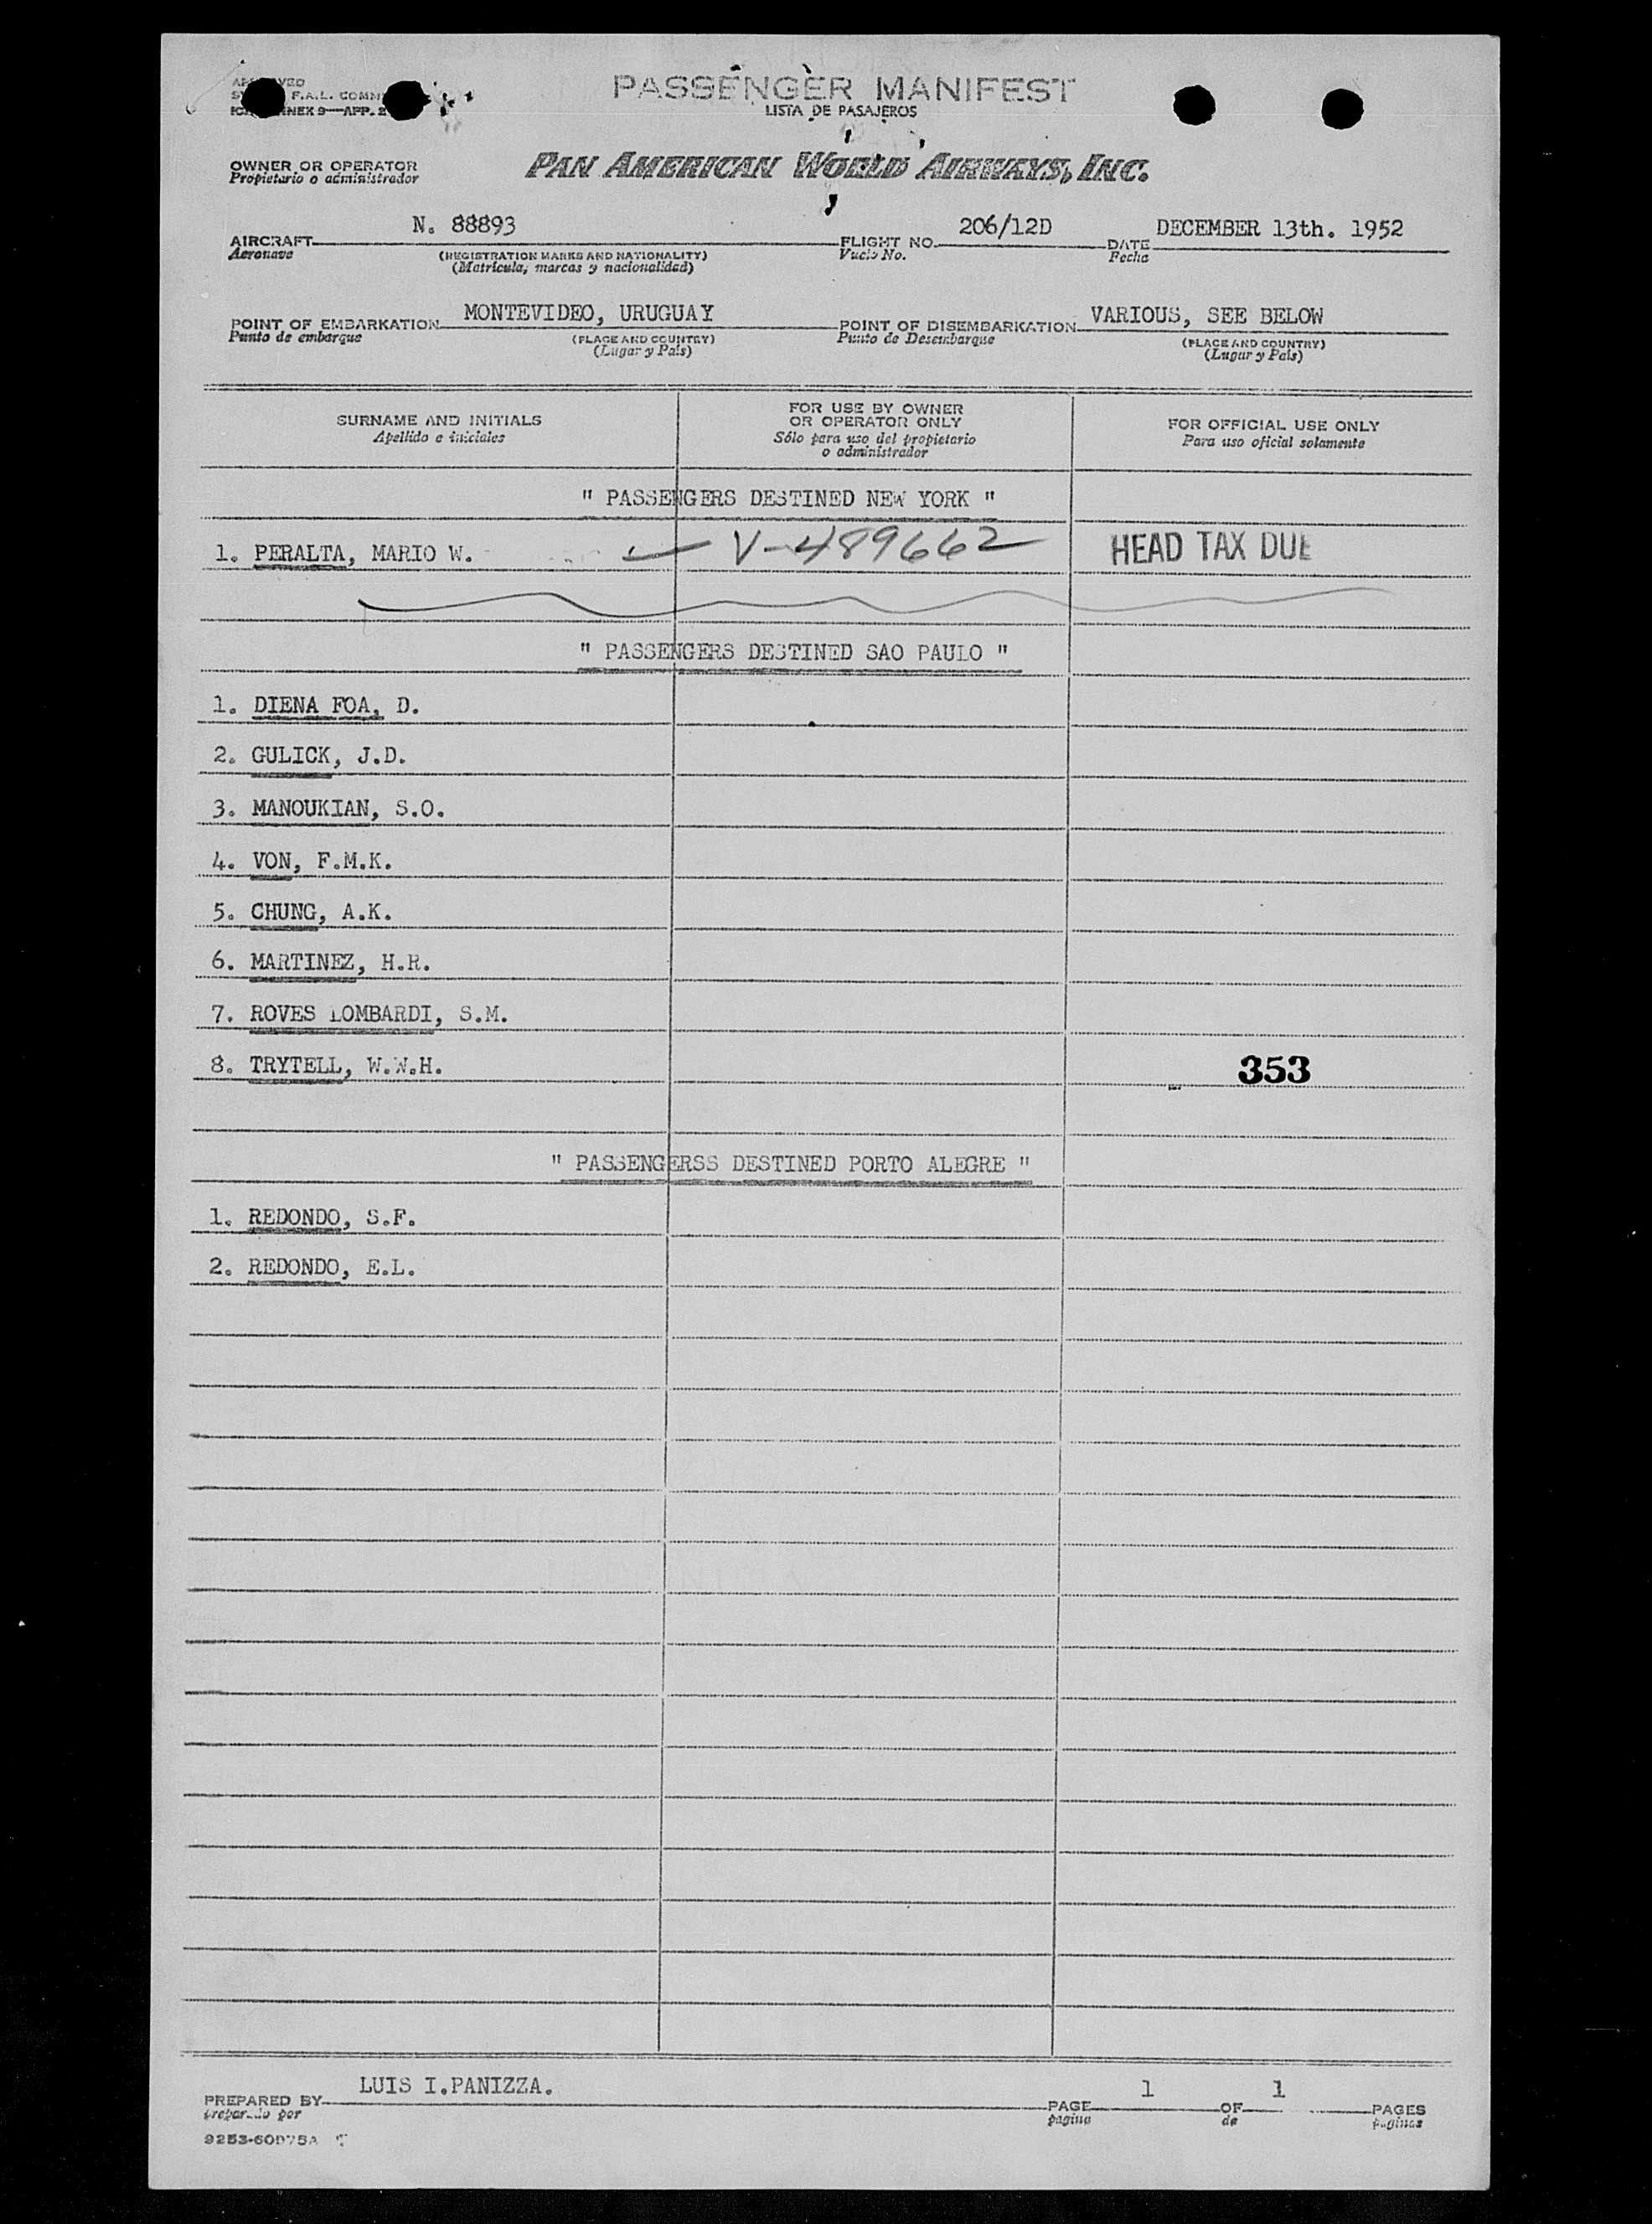 PASSENGER MANIFEST
LISTA DE PASAJEROS
F.A.L.
ANNEX 9—APP. 2
OWNER OR OPERATOR
Propietario o administrador
PAN AMERICAN WORLD AIRWAYS, INC.
AIRCRAFT N. 88893 FLIGHT NO. 206/12D DATE DECEMBER 13th. 1952
Aeronave (REGISTRATION MARKS AND NATIONALITY) Vuelo No. Fecha
(Matrícula, marcas y nacionalidad)
POINT OF EMBARKATION MONTEVIDEO, URUGUAY POINT OF DISEMBARKATION VARIOUS, SEE BELOW
Punto de embarque (PLACE AND COUNTRY) Punto de Desembarque (PLACE AND COUNTRY)
(Lugar y País) (Lugar y País)
SURNAME AND INITIALS
Apellido e iniciales
FOR USE BY OWNER
OR OPERATOR ONLY
Sólo para uso del propietario
o administrador
FOR OFFICIAL USE ONLY
Para uso oficial solamente
" PASSENGERS DESTINED NEW YORK "
1. PERALTA, MARIO W. V-489662 HEAD TAX DUE
" PASSENGERS DESTINED SAO PAULO "
1. DIENA FOA, D.
2. GULICK, J.D.
3. MANOUKIAN, S.O.
4. VON, F.M.K.
5. CHUNG, A.K.
6. MARTINEZ, H.R.
7. ROVES LOMBARDI, S.M.
8. TRYTELL, W.W.H. 353
" PASSENGERSS DESTINED PORTO ALEGRE "
1. REDONDO, S.F.
2. REDONDO, E.L.
PREPARED BY LUIS I.PANIZZA. PAGE 1 OF 1 PAGES
preparado por página de páginas